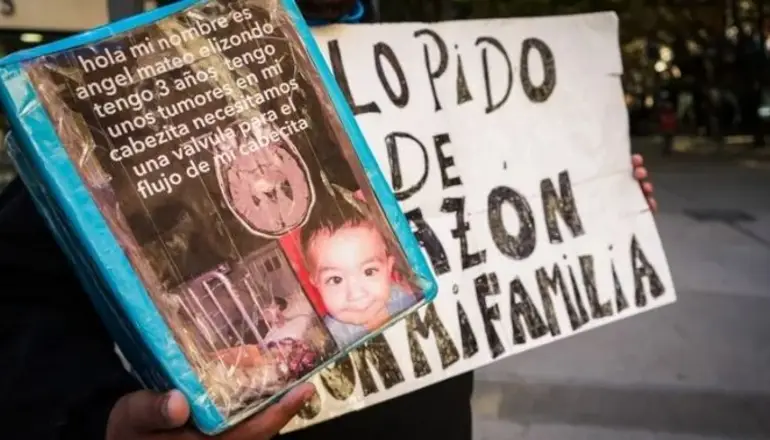 hola mi nombre es
angel mateo elizondo
tengo 3 años tengo
unos tumores en mi
cabezita necesitamos
una valvula para el
flujo de mi cabecita
LO PIDO
DE
AZÓN
MI FAMILIA